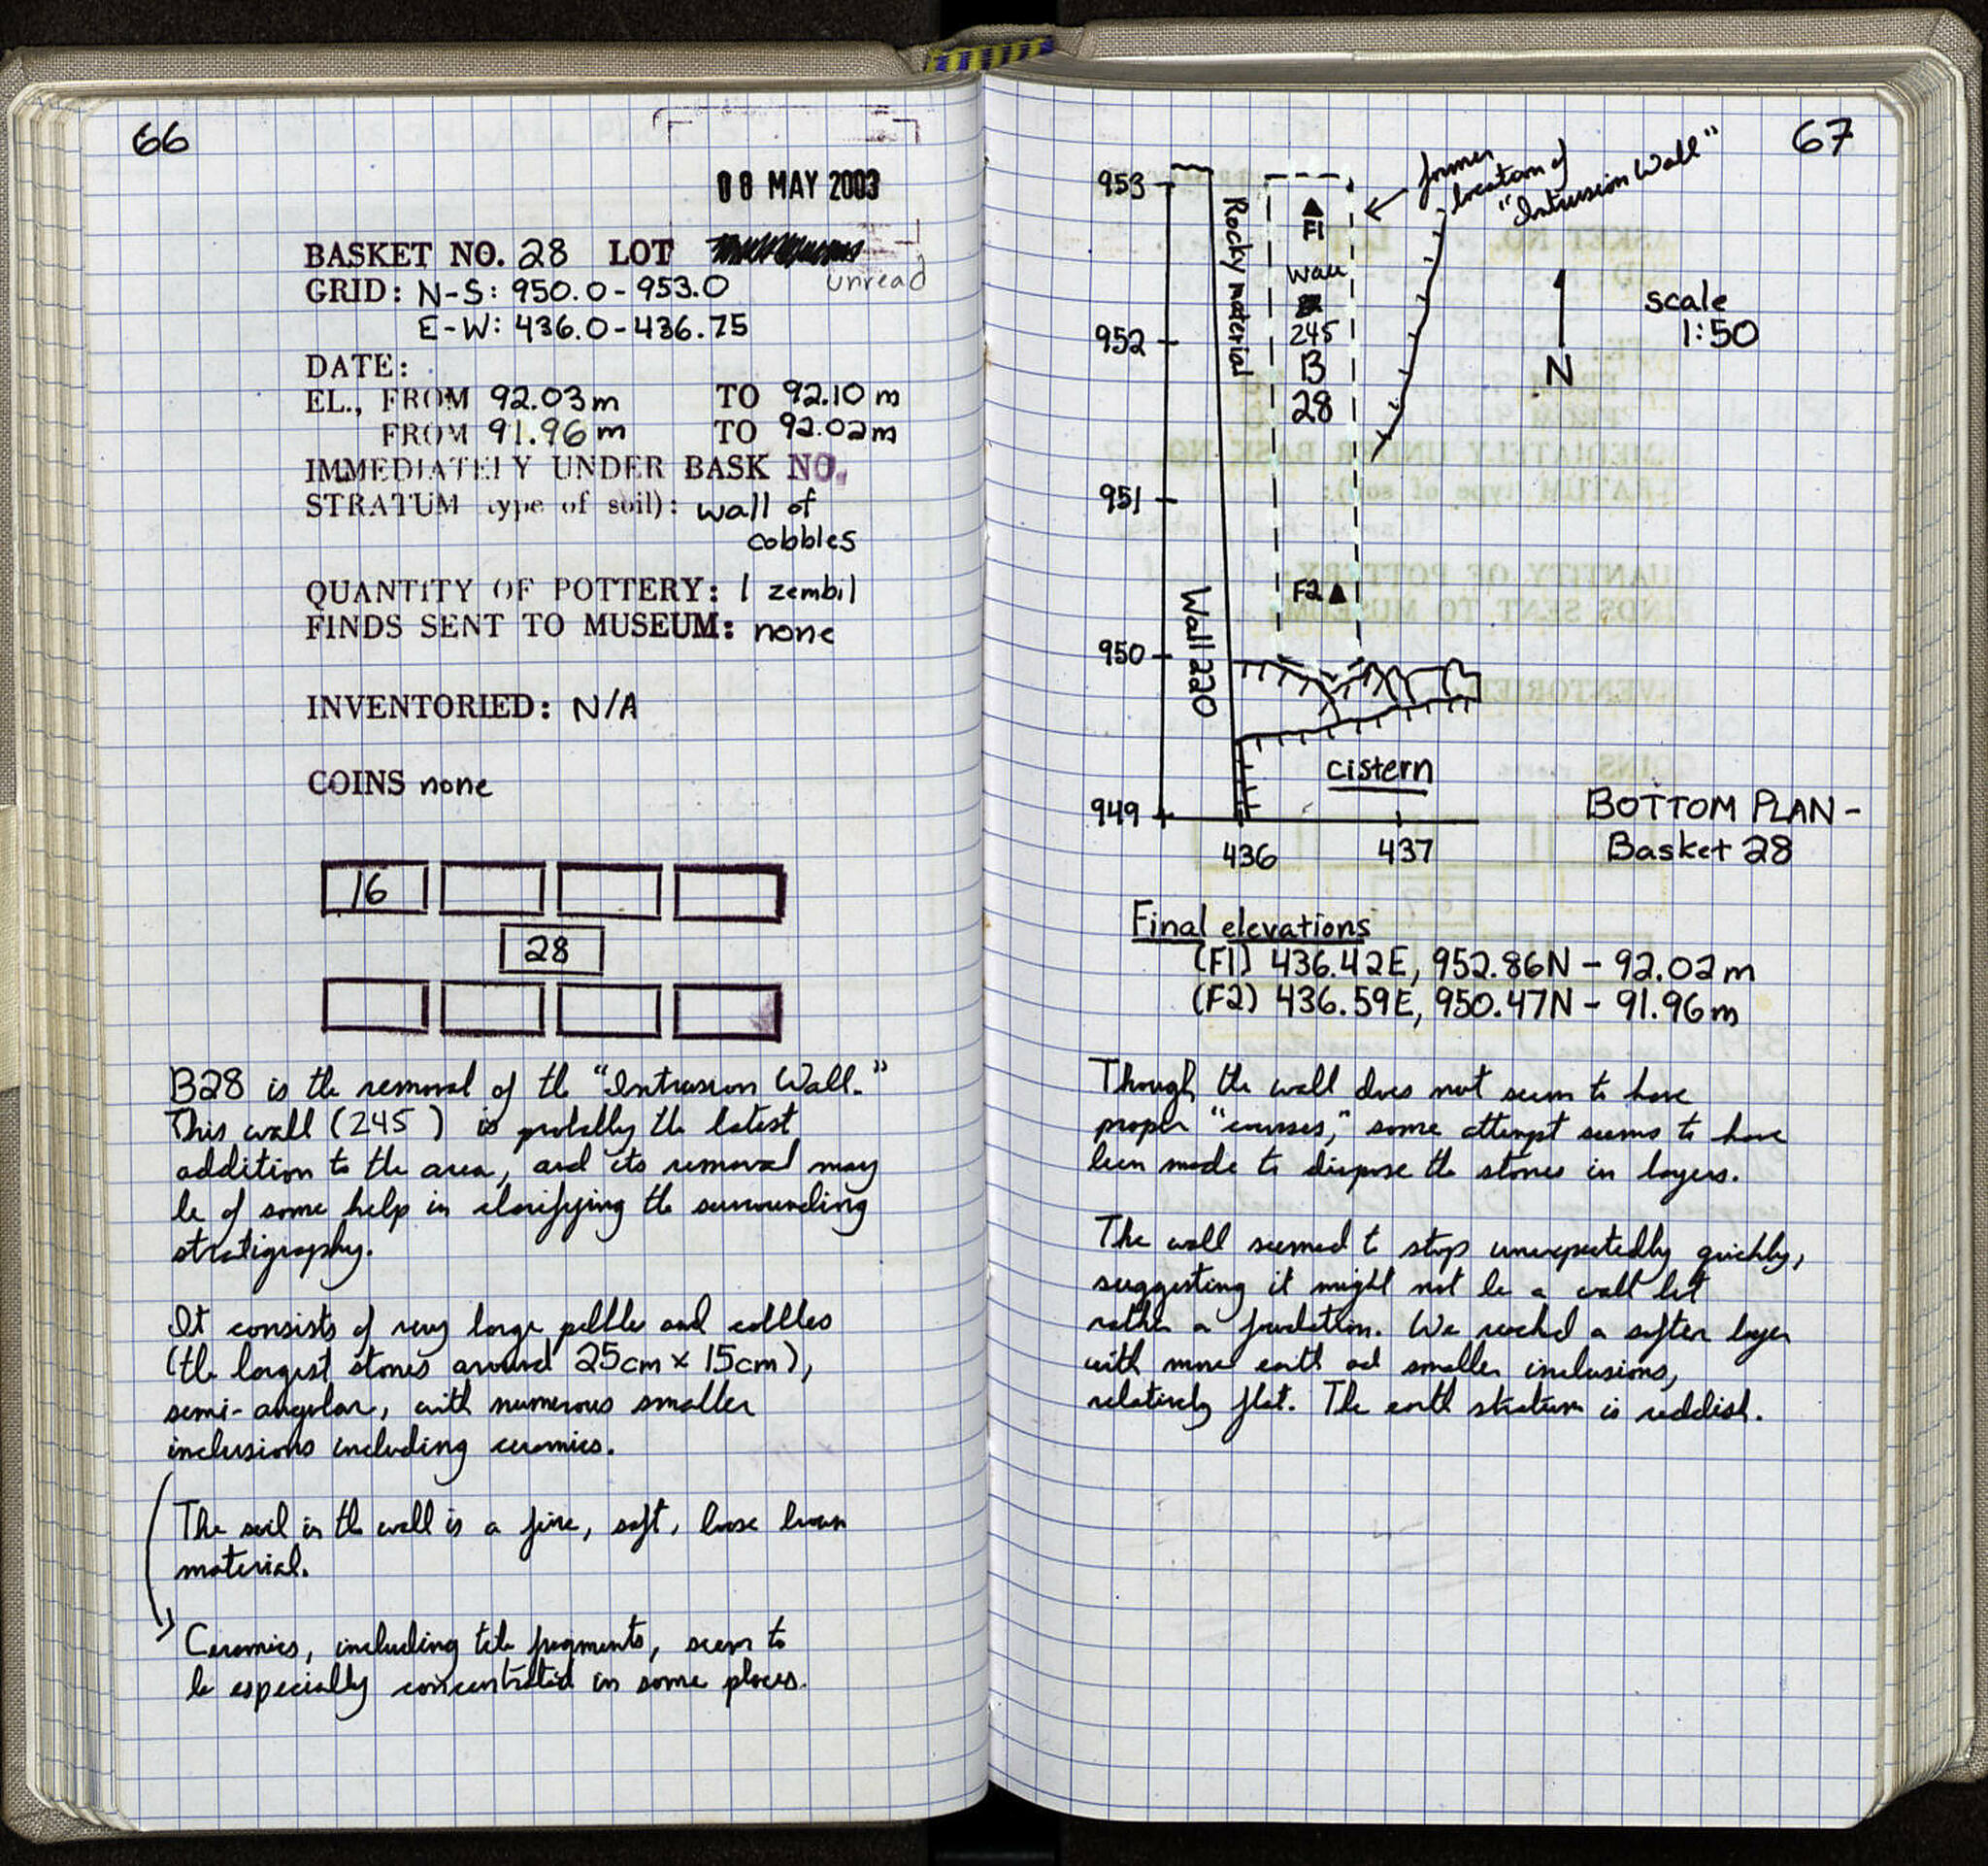 66
08 MAY 2003
BASKET NO. 28 LOT
unread
GRID: N-S: 950.0-953.0
E-W: 436.0-436.75
DATE:
EL., FROM 92.03m TO 92.10 m
FROM 91.96 m TO 92.02m
IMMEDIATELY UNDER BASK NO.
STRATUM type of soil): wall of
cobbles
QUANTITY OF POTTERY: 1 zembil
FINDS SENT TO MUSEUM: none
INVENTORIED: N/A
COINS none
16
28
B28 is the removal of the "Intrusion Wall."
This wall (245 ) is probably the latest
addition to the area, and its removal may
be of some help in clarifying the surrounding
stratigraphy.
It consists of very large pebbles and cobbles
(the largest stones around 25cm x 15cm),
semi-angular, with numerous smaller
inclusions including ceramics.
The soil in the wall is a fine, soft, loose brown
material.
Ceramics, including tile fragments, seem to
be especially concentrated in some places.
67
former
location of
"Intrusion Wall"
953
952
951
950
949
Rocky material
F1
Wall
245
B
28
F2
Wall 220
N
scale
1:50
cistern
436
437
BOTTOM PLAN -
Basket 28
Final elevations
(F1) 436.42E, 952.86N - 92.02m
(F2) 436.59E, 950.47N - 91.96m
Though the wall does not seem to have
proper "courses," some attempt seems to have
been made to dispose the stones in layers.
The wall seemed to stop unexpectedly quickly,
suggesting it might not be a wall but
rather a foundation. We reached a softer layer
with more earth and smaller inclusions,
relatively flat. The earth stratum is reddish.